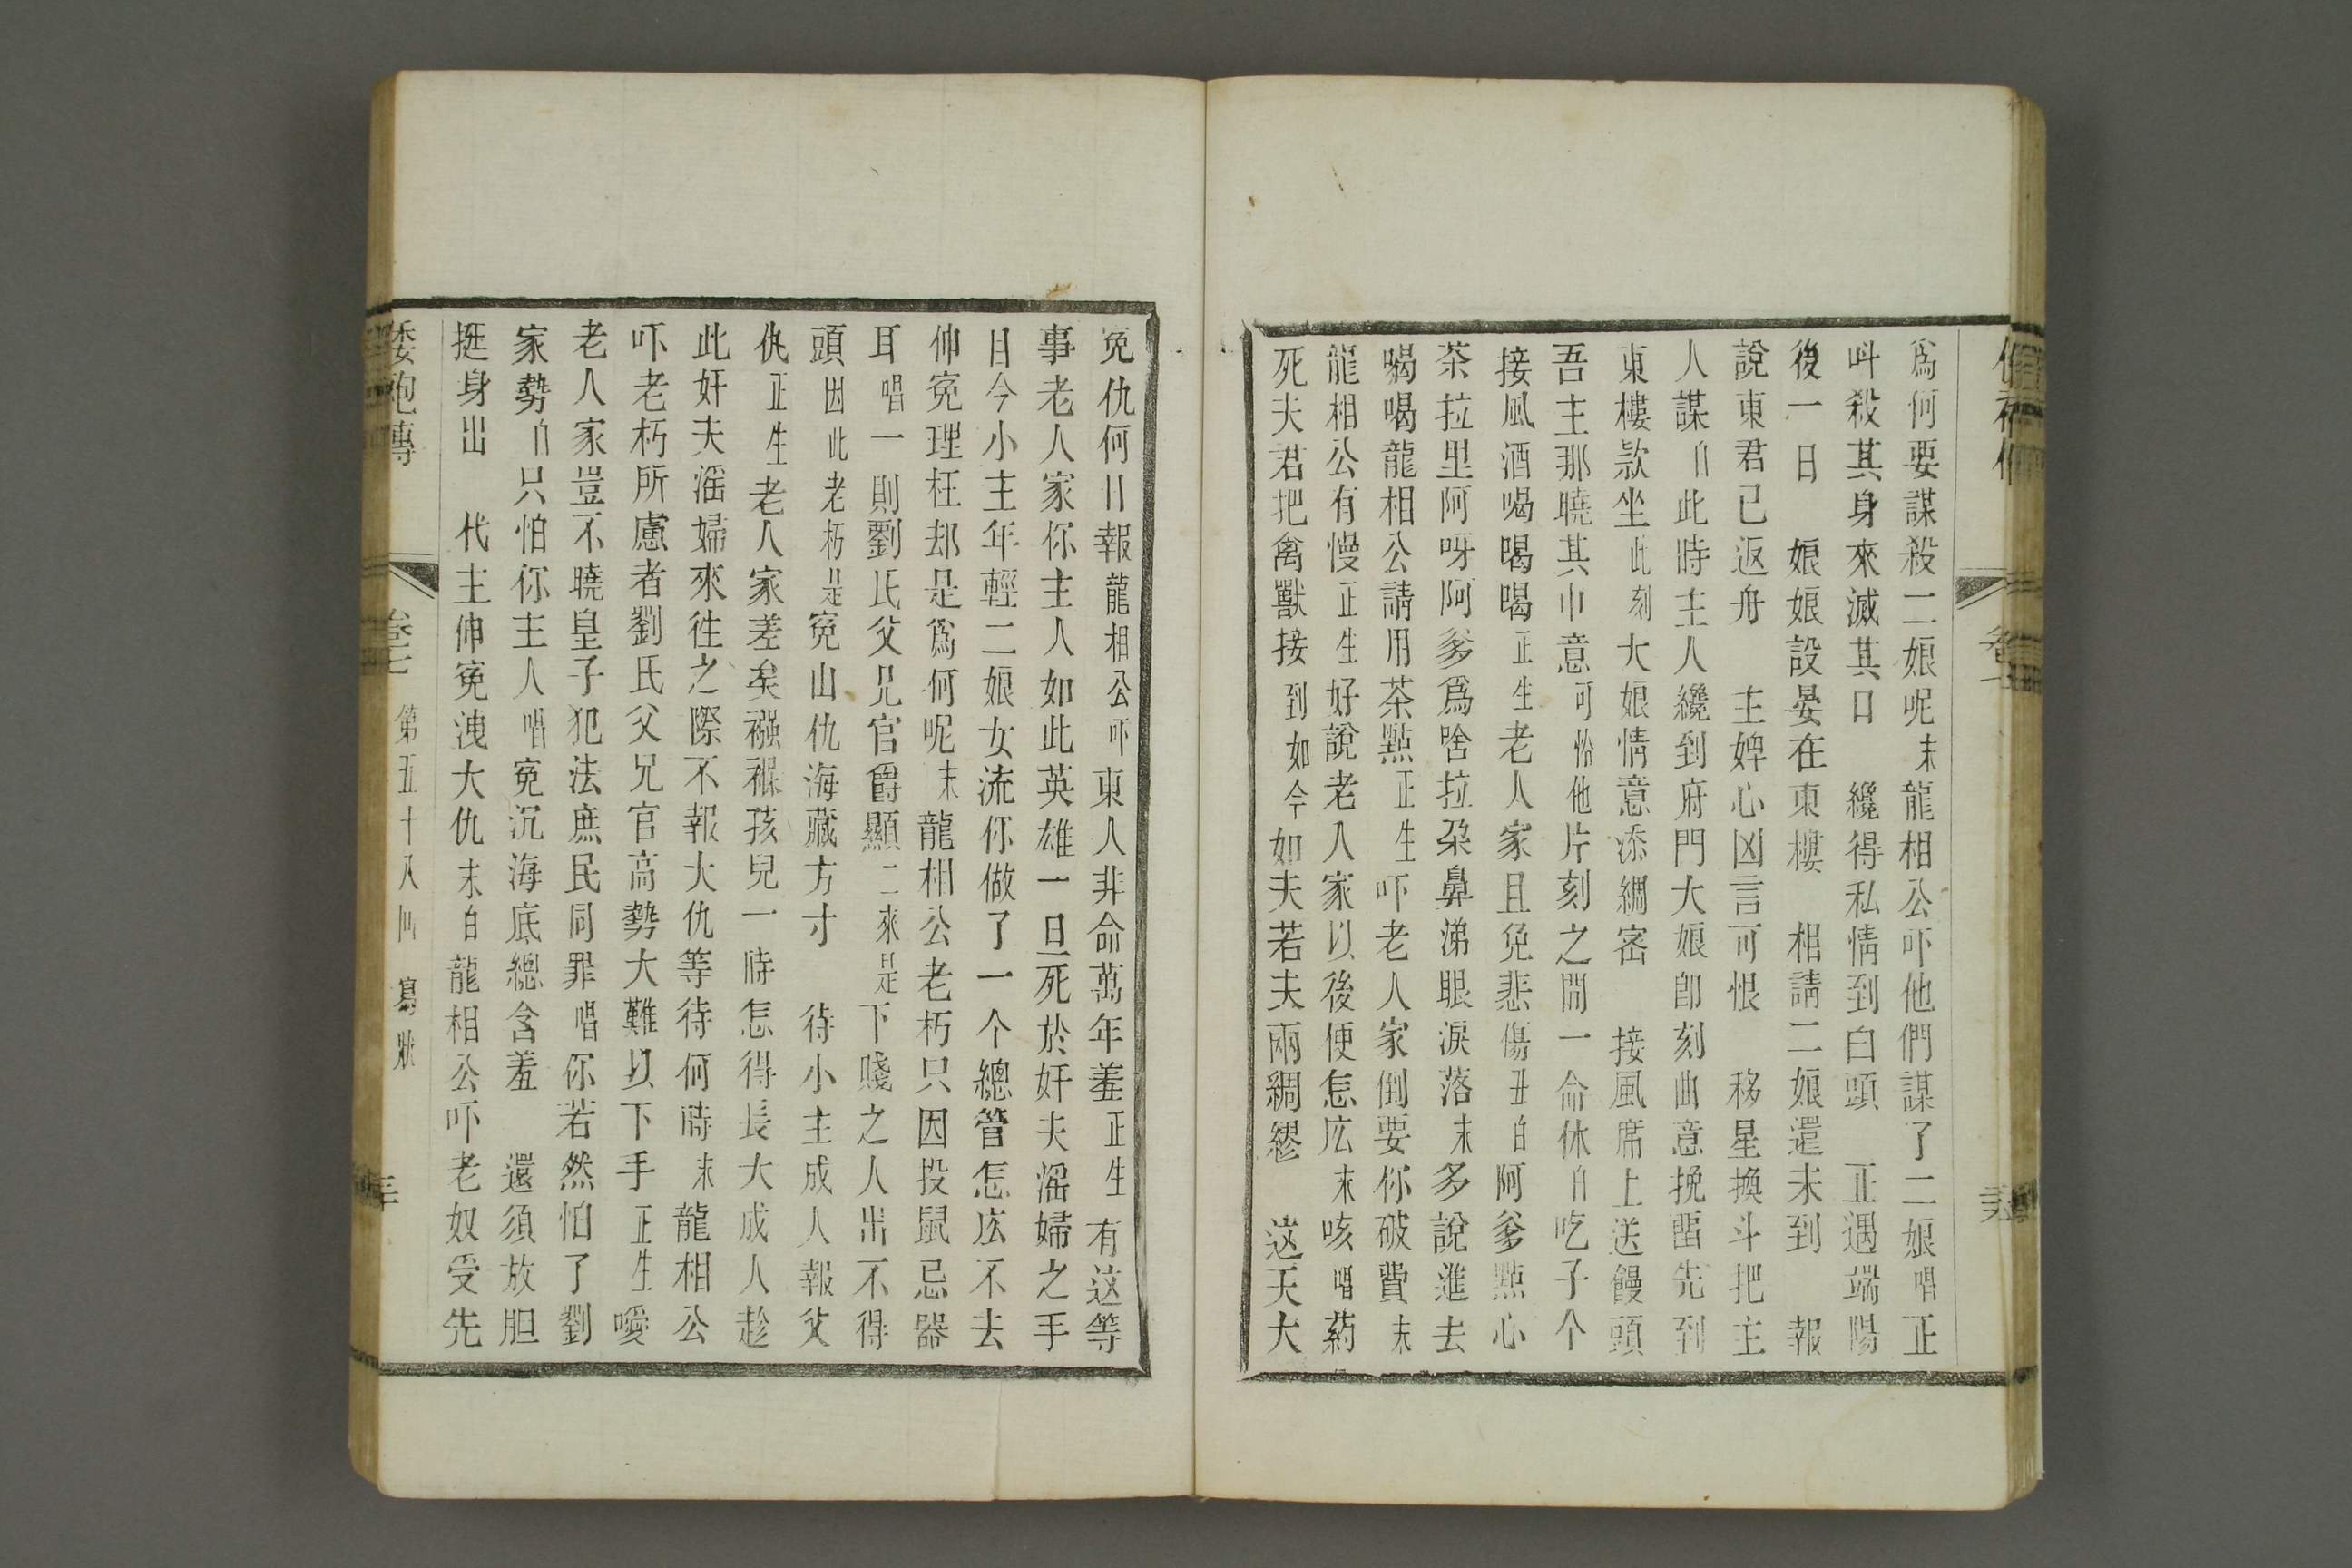 爲何要謀殺二娘呢末龍相公吓他們謀了二娘唱正
呌殺其身來滅其口　纔得私情到白頭　正遇端陽
後一日　娘娘設晏在東樓　相請二娘還未到　報
說東君已返舟　主婢心凶言可恨　移星換斗把主
人謀白此時主人纔到府門大娘卽刻曲意挽畱先到
東樓欵坐此刻大娘情意添綢密　接風席上送饅頭
吾主那曉其中意可怜他片刻之間一命休白吃子个
接風酒喝喝喝正生老人家且免悲傷丑白阿爹點心
茶拉里阿呀阿爹爲啥拉朶鼻涕眼淚落末多說進去
喝喝龍相公請用茶點正生吓老人家倒要你破費末
龍相公有慢正生好說老人家以後便怎庅末咳唱葯
死夫君把禽獸接到如今如夫若夫兩綢繆　这天大
寃仇何日報龍相公吓東人非命萬年羞正生有这等
事老人家你主人如此英雄一旦死於奸夫滛婦之手
目今小主年輕二娘女流你做了一个總管怎庅不去
伸寃理枉却是爲何呢末龍相公老朽只因投鼠忌器
耳唱一則劉氏父兄官爵顯二來是下賤之人出不得
頭因此老朽是寃山仇海藏方寸　待小主成人報父
仇正生老人家差矣襁褓孩兒一時怎得長大成人趁
此奸夫滛婦來往之際不報大仇等待何時末龍相公
吓老朽所慮者劉氏父兄官高勢大難以下手正生噯
老人家豈不曉皇子犯法庶民同罪唱你若然怕了劉
家勢白只怕你主人唱寃沉海底總含羞　還須放胆
挺身出　代主伸寃洩大仇末白龍相公吓老奴受先
倭袍傳　卷七　第五十八回　寫狀　三十